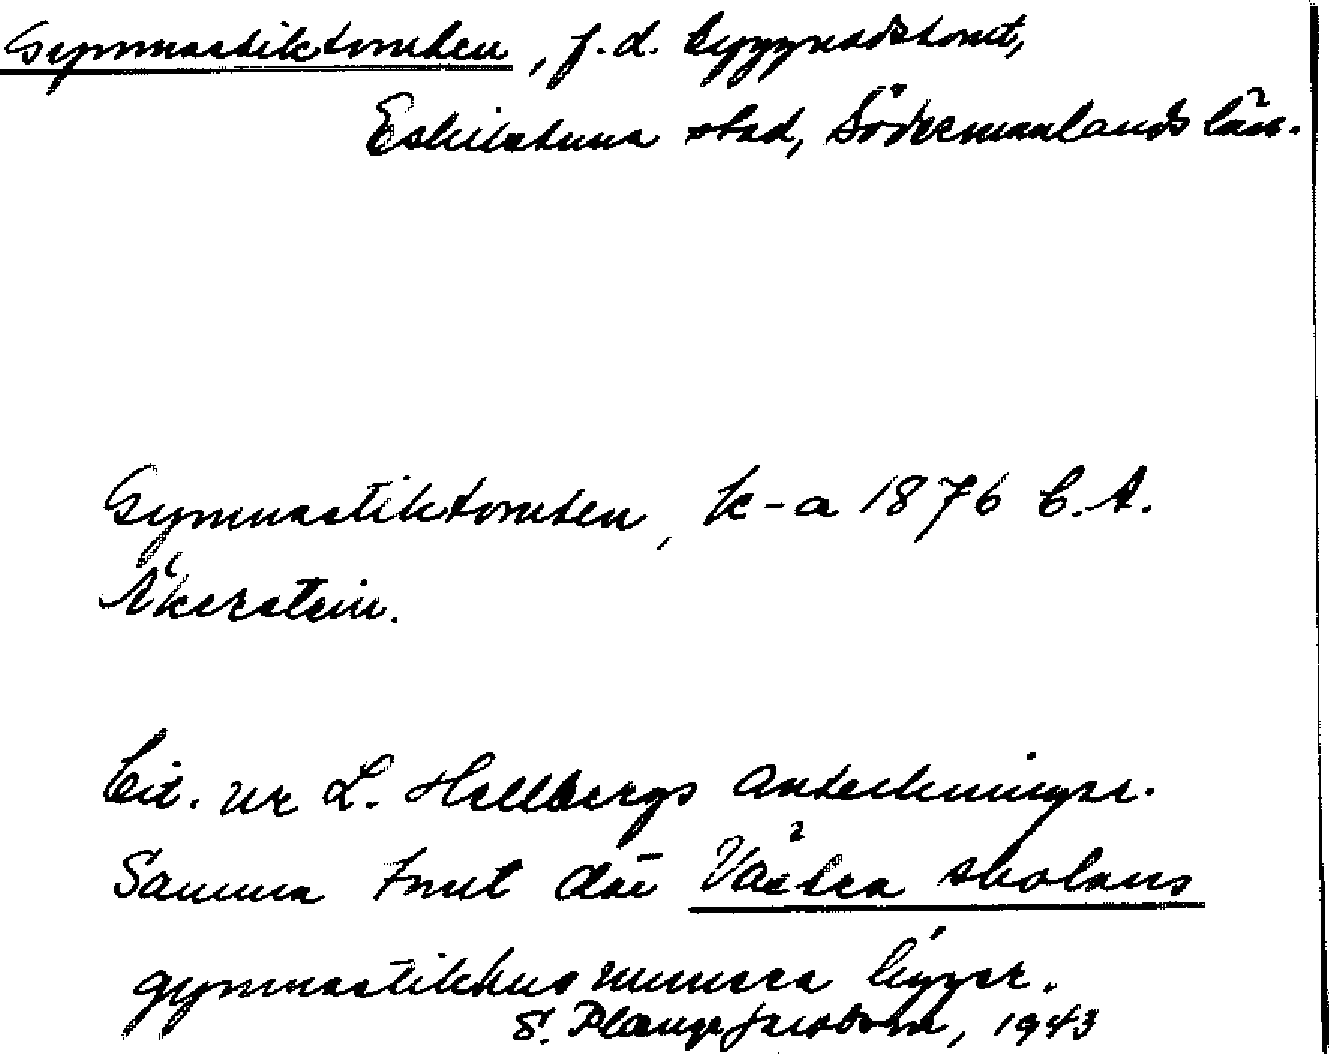 Gymnastiktomten, f.d. byggnadstomt,
Eskilstuna stad, Södermanlands län.
Gymnastiktomten, k-a 1876 C.A.
Åkerstein.
Cit. ur L. Hellbergs anteckningar.
Samma tomt där Västra skolans
gymnastikhus numera ligger.
S. Jacobson, 1943